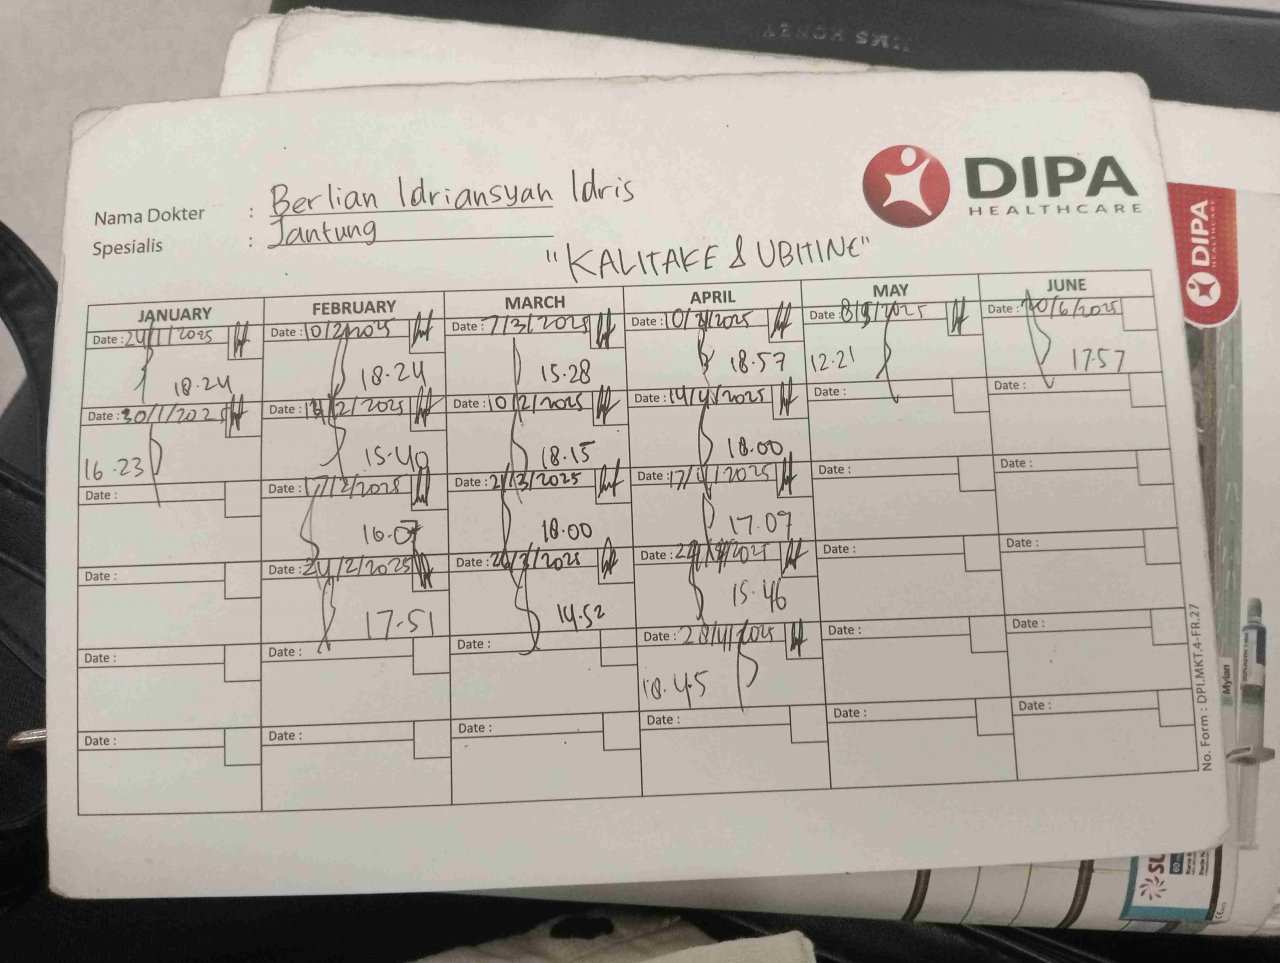 DIPA
HEALTHCARE
Nama Dokter : Berlian Idriansyah Idris
Spesialis : Jantung
"KALITAKE & UBITINE"
JANUARY FEBRUARY MARCH APRIL MAY JUNE
Date : 24/1/2025 Date : 10/2/2025 Date : 7/3/2025 Date : 10/4/2025 Date : 8/5/2025 Date : 20/6/2025
18.24 18.24 15.28 18.57 12.21 17.57
Date : 30/1/2025 Date : /2/2025 Date : 10/2/2025 Date : 14/4/2025 Date : Date :
16.23 15.40 18.15 18.00
Date : Date : 17/2/2025 Date : 21/3/2025 Date : 17/4/2025 Date : Date :
16.07 18.00 17.07
Date : Date : 24/2/2025 Date : 26/3/2025 Date : /2025 Date : Date :
17.51 14.52 15.46
Date : Date : Date : Date : 28/4/2025 Date : Date :
18.45
Date : Date : Date : Date : Date : Date :
No. Form : DPI.MKT.4-FR.27
DIPA
HEALTHCARE
Mylan